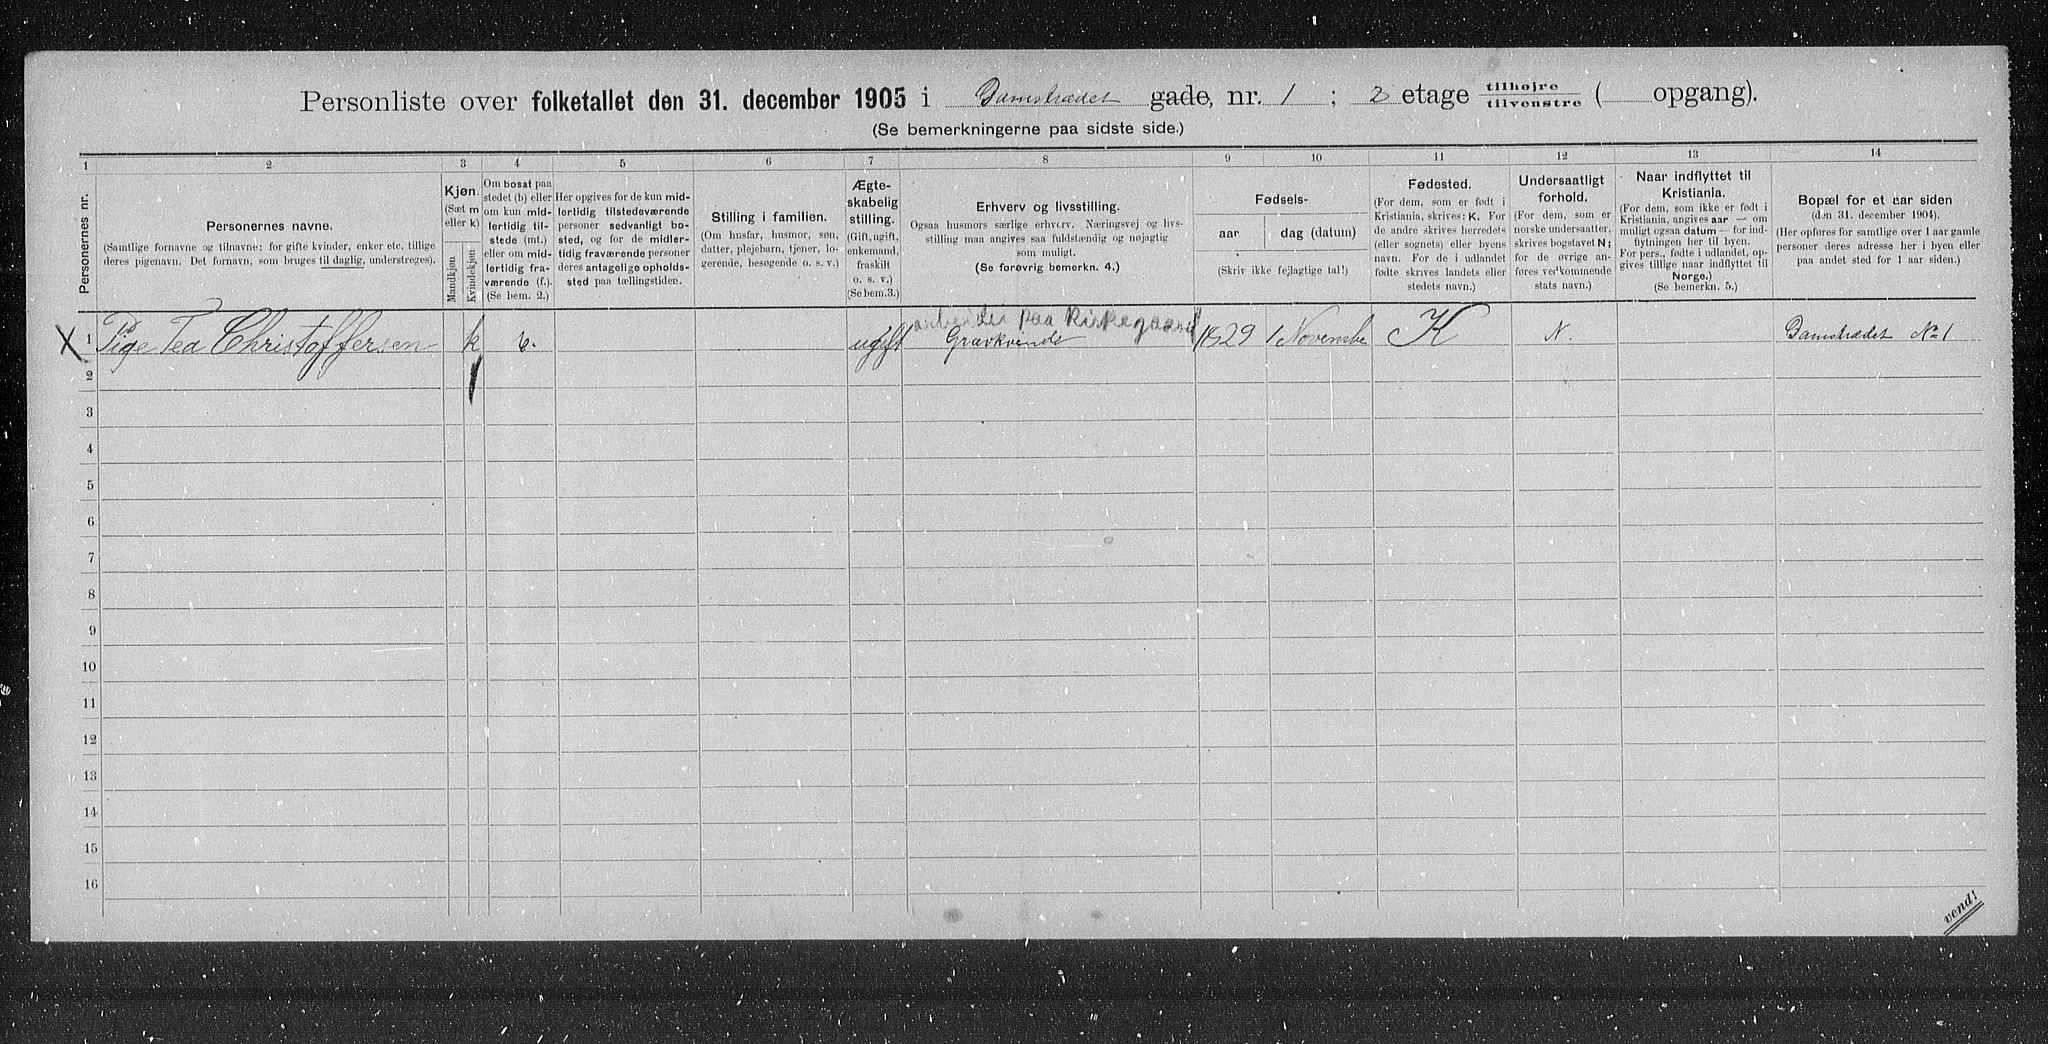 Personliste over folketallet den 31. december 1905 i Damstrædet gade, nr. 1 ; 2 etage tilhøjre tilvenstre ( opgang).
(Se bemerkningerne paa sidste side.)
1 2 3 4 5 6 7 8 9 10 11 12 13 14
Personernes nr.
Personernes navne.
(Samtlige fornavne og tilnavne; for gifte kvinder, enker etc. tillige
deres pigenavn. Det fornavn, som bruges til daglig, understreges).
Kjøn.
(Sæt m
eller k)
Mandkjøn
Kvindekjøn
Om bosat paa
stedet (b) eller
om kun mid-
lertidig til-
stede (mt.)
eller om mid-
lertidig fra-
værende (f.).
(Se bem. 2.)
Her opgives for de kun mid-
lertidig tilstedeværende
personer sedvanligt bo-
sted, og for de midler-
tidig fraværende personer
deres antagelige opholds-
sted paa tællingstiden.
Stilling i familien.
(Om husfar, husmor, søn,
datter, plejebarn, tjener, lo-
gerende, besøgende o. s. v.)
Ægte-
skabelig
stilling.
(Gift, ugift,
enkemand,
fraskilt
o. s. v.)
(Se bem. 3.)
Erhverv og livsstilling.
Ogsaa husmors særlige erhverv. Næringsvej og livs-
stilling maa angives saa fuldstændig og nøjagtig
som muligt.
(Se forøvrig bemerkn. 4.)
Fødsels-
aar
dag (datum)
(Skriv ikke fejlagtige tal!)
Fødested.
(For dem, som er født i
Kristiania, skrives: K. For
de andre skrives herredets
(eller sognets) eller byens
navn. For de i udlandet
fødte skrives landets eller
stedets navn.)
Undersaatligt
forhold.
(For dem, som er
norske undersaatter,
skrives bogstavet N;
for de øvrige an-
føres vedkommende
stats navn.)
Naar indflyttet til
Kristiania.
(For dem, som ikke er født i
Kristiania, angives aar — om
muligt ogsaa datum — for ind-
flytningen her til byen.
For pers., fødte i udlandet, op-
gives tillige naar indflyttet til
Norge.)
(Se bemerkn. 5.)
Bopæl for et aar siden
(den 31. december 1904).
(Her opføres for samtlige over 1 aar gamle
personer deres adresse her i byen eller
paa andet sted for 1 aar siden.)
arbeider paa Kirkegaard
X 1 Pige Tea Christoffersen k b. ugift Gravkvinde 1829 1 November K N. Damstrædet No 1
2
3
4
5
6
7
8
9
10
11
12
13
14
15
16
vend!